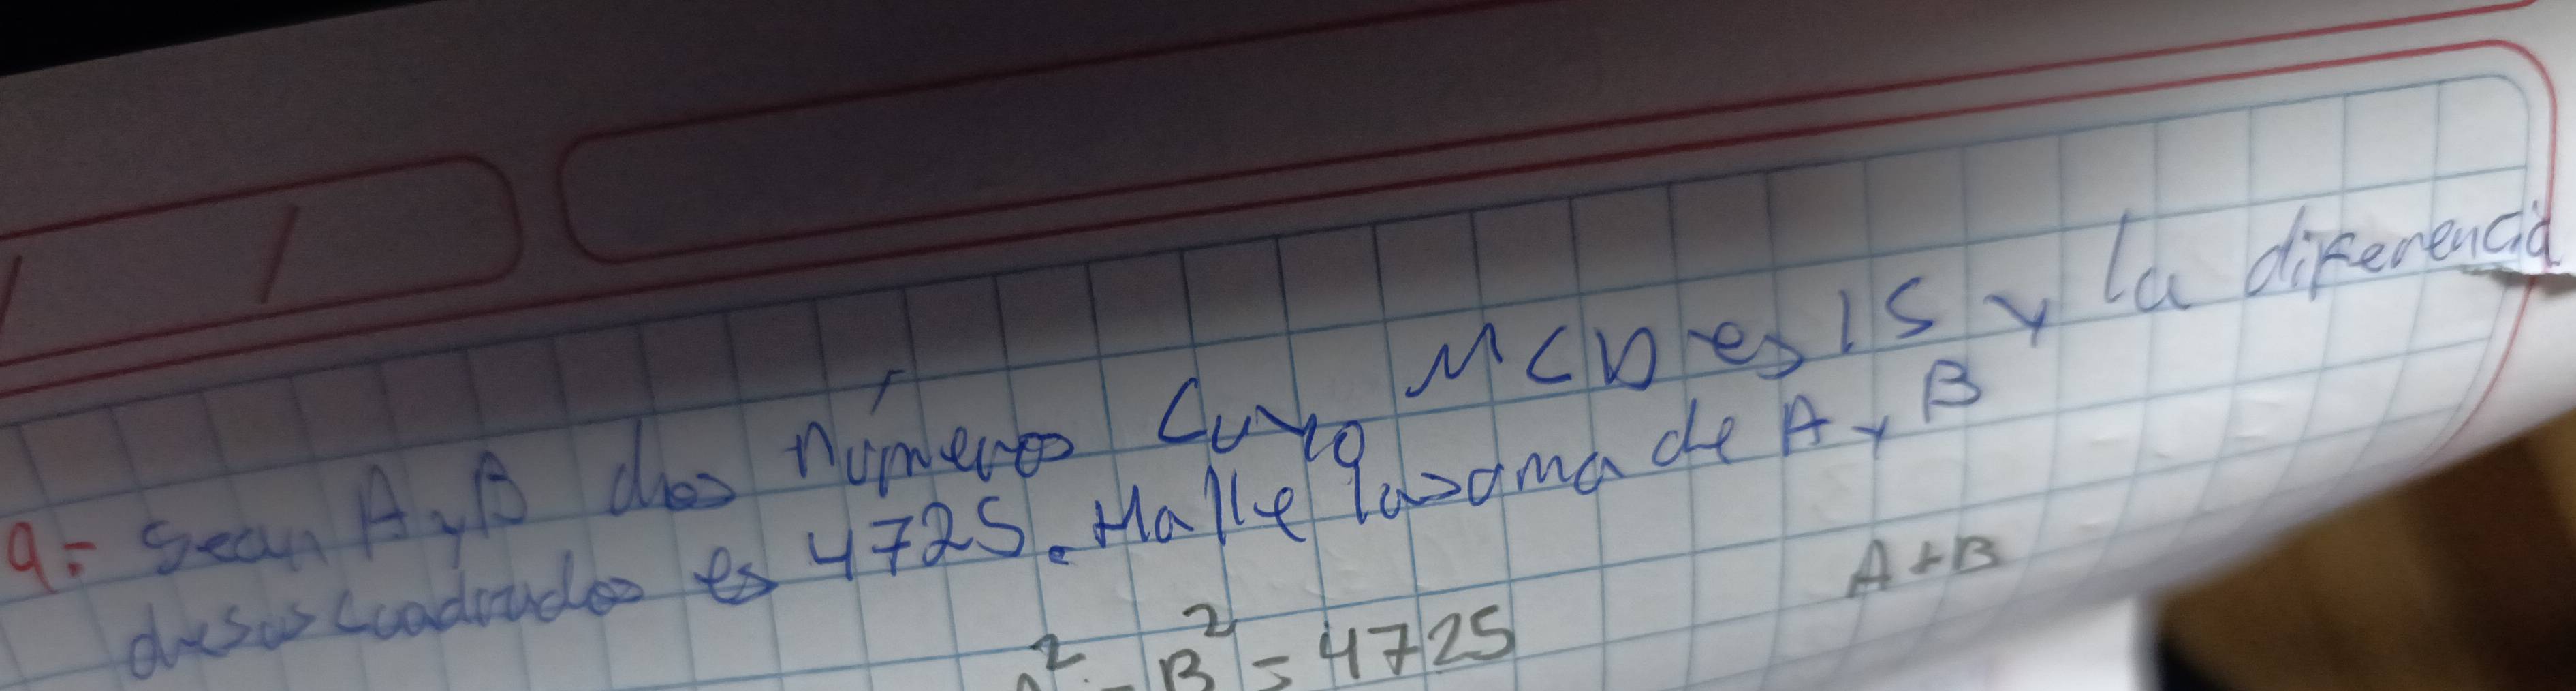 9= Sean A y B dos números cuyo MCD es 15 y la diferencia
de sus cuadrados es 4725. Halle la soma de A y B
A+B
A² - B² = 4725